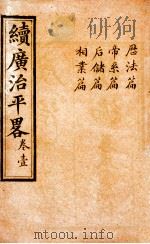 續廣治平畧 卷壹
曆法篇
帝系篇
后儲篇
相業篇
mtoou.info